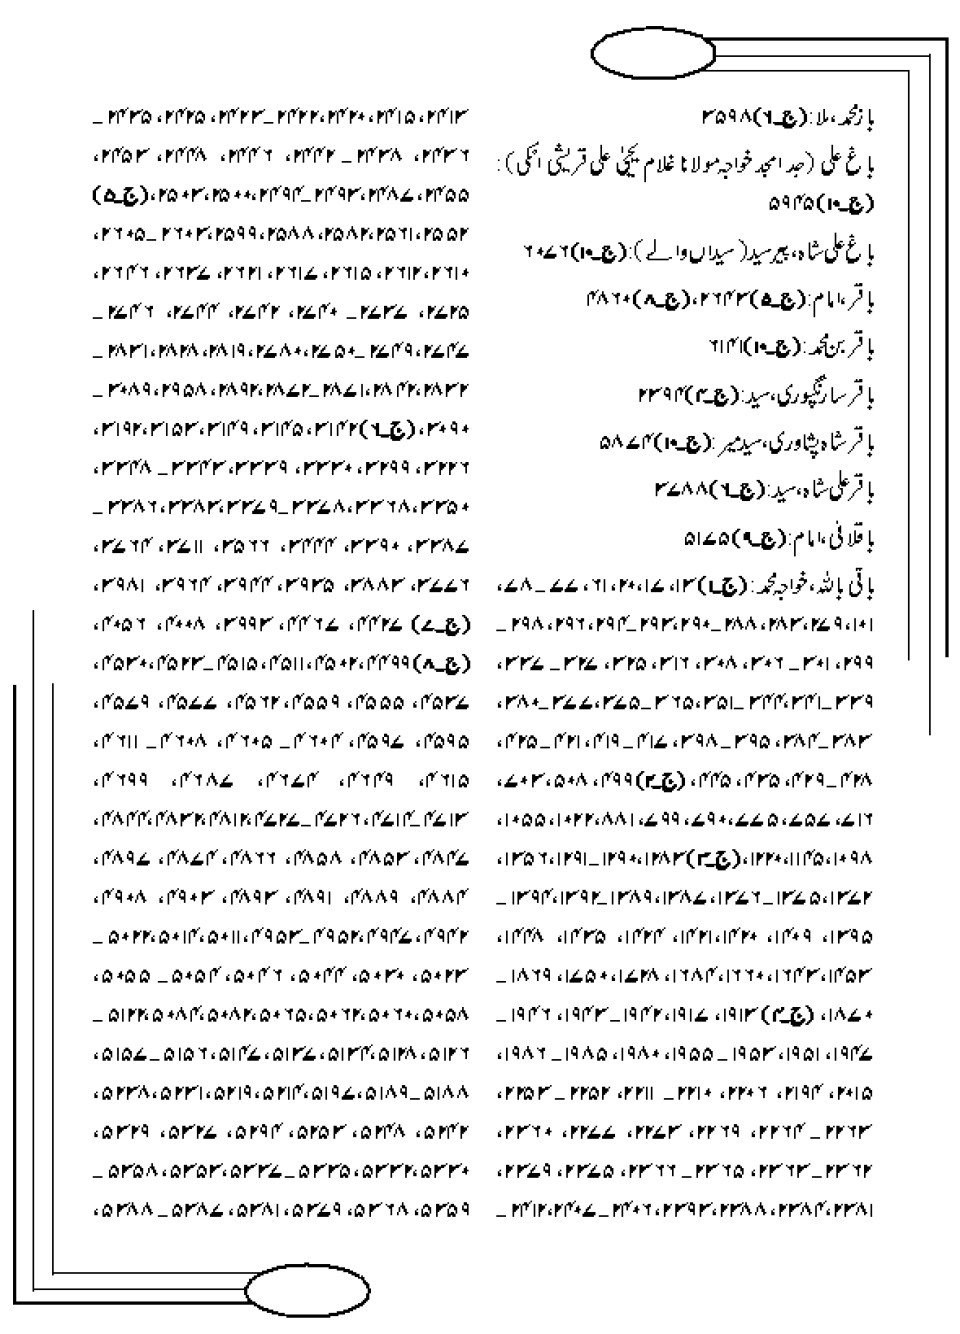 باز محمد، ملا: (ج_۶)۳۵۹۸
باغ علی (جد امجد خواجہ مولانا غلام یحییٰ علی قریشی انکی):
(ج_۱۰)۵۹۴۵
باغ علی شاہ، پیر سید (سیداں والے): (ج_۱۰)۶۰۷۶
باقر، امام: (ج_۵)۲۶۴۳، (ج_۸)۴۸۶۰
باقر بن محمد: (ج_۱۰)۶۱۴۱
باقر سارنگپوری، سید: (ج_۴)۲۳۹۴
باقر شاہ پشاوری، سید میر: (ج_۱۰)۵۸۷۴
باقر علی شاہ، سید: (ج_۶)۳۷۸۸
باقلانی، امام: (ج_۹)۵۱۷۵
باقی باللہ، خواجہ محمد: (ج_۱)۱۳، ۱۷، ۲۰، ۶۱، ۷۷_۸۷،
۱۰۱، ۲۷۹، ۲۸۳، ۲۸۸_۲۹۰، ۲۹۳_۲۹۴، ۲۹۶، ۲۹۸_
۲۹۹، ۳۰۱_۳۰۶، ۳۰۸، ۳۱۶، ۳۲۵، ۳۲۷_۳۳۷،
۳۳۹_۳۴۱، ۳۴۴، ۳۵۱_۳۶۵، ۳۷۵_۳۷۷، ۳۸۰_
۳۸۳_۳۸۴، ۳۹۵_۳۹۸، ۴۱۷_۴۱۹، ۴۲۱_۴۲۵،
۴۲۸_۴۲۹، ۴۳۵، ۴۴۵، (ج_۲)۴۹۹، ۵۰۸، ۷۰۳،
۷۱۶، ۷۵۶، ۷۷۵، ۷۹۰، ۷۹۹، ۸۸۱، ۱۰۲۲، ۱۰۵۵،
۱۰۹۸، ۱۱۴۵، ۱۲۲۰، (ج_۳)۱۲۸۳، ۱۲۹۰_۱۲۹۱، ۱۳۵۶،
۱۳۷۲، ۱۳۷۵_۱۳۷۶، ۱۳۸۷، ۱۳۸۹، ۱۳۹۲، ۱۳۹۴_
۱۳۹۵، ۱۴۰۹، ۱۴۲۰، ۱۴۲۱، ۱۴۲۴، ۱۴۳۵، ۱۴۴۸،
۱۴۵۳، ۱۶۴۳، ۱۶۶۰، ۱۶۸۴، ۱۷۲۸، ۱۷۵۰، ۱۸۶۹_
۱۸۷۰، (ج_۴)۱۹۱۳، ۱۹۱۷، ۱۹۴۲_۱۹۴۳، ۱۹۴۶_
۱۹۴۷، ۱۹۵۱، ۱۹۵۳_۱۹۵۵، ۱۹۸۰، ۱۹۸۵_۱۹۸۶،
۲۰۱۵، ۲۱۹۴، ۲۲۰۶، ۲۲۱۰_۲۲۱۱، ۲۲۵۲_۲۲۵۳،
۲۲۶۳_۲۲۶۴، ۲۲۶۹، ۲۲۷۳، ۲۲۷۷، ۲۳۶۰،
۲۳۶۲_۲۳۶۳، ۲۳۶۵_۲۳۶۶، ۲۳۷۵، ۲۳۷۹،
۲۳۸۱، ۲۳۸۴، ۲۳۸۸، ۲۳۹۳، ۲۴۰۶_۲۴۰۷، ۲۴۱۲_
۲۴۱۳، ۲۴۱۵، ۲۴۲۰، ۲۴۲۲_۲۴۲۳، ۲۴۲۵، ۲۴۳۵_
۲۴۳۶، ۲۴۳۸_۲۴۴۲، ۲۴۴۶، ۲۴۴۸، ۲۴۵۳،
۲۴۵۵، ۲۴۸۷، ۲۴۹۳_۲۴۹۴، ۲۵۰۰، ۲۵۰۳، (ج_۵)
۲۵۵۲، ۲۵۶۱، ۲۵۸۲، ۲۵۸۸، ۲۵۹۹، ۲۶۰۲_۲۶۰۵،
۲۶۱۰، ۲۶۱۲، ۲۶۱۵، ۲۶۱۷، ۲۶۲۱، ۲۶۳۷، ۲۶۴۶،
۲۷۲۵، ۲۷۳۷_۲۷۴۰، ۲۷۴۲، ۲۷۴۴، ۲۷۴۶_
۲۷۴۷، ۲۷۴۹_۲۷۵۰، ۲۷۸۰، ۲۸۱۹، ۲۸۲۸، ۲۸۳۱_
۲۸۳۲، ۲۸۴۲، ۲۸۷۱_۲۸۷۲، ۲۸۹۲، ۲۹۵۸، ۳۰۸۹_
۳۰۹۰، (ج_۶)۳۱۴۲، ۳۱۴۵، ۳۱۴۹، ۳۱۵۳، ۳۱۹۲،
۳۲۲۶، ۳۲۹۹، ۳۳۳۰، ۳۳۳۹، ۳۳۴۳_۳۳۴۸،
۳۳۵۰، ۳۳۶۸، ۳۳۷۸_۳۳۷۹، ۳۳۸۲، ۳۳۸۶_
۳۳۸۷، ۳۳۹۰، ۳۴۴۴، ۳۵۶۶، ۳۷۱۱، ۳۷۶۴،
۳۷۷۶، ۳۸۸۳، ۳۹۳۵، ۳۹۴۴، ۳۹۶۴، ۳۹۸۱،
(ج_۷) ۴۲۲۷، ۴۲۶۷، ۳۹۹۳، ۴۰۰۸، ۴۰۵۶،
(ج_۸)۴۴۹۹، ۴۵۰۲، ۴۵۱۱، ۴۵۱۵_۴۵۲۳، ۴۵۳۰،
۴۵۳۷، ۴۵۵۵، ۴۵۵۹، ۴۵۶۲، ۴۵۷۷، ۴۵۷۹،
۴۵۹۵، ۴۵۹۷، ۴۶۰۴_۴۶۰۵، ۴۶۰۸_۴۶۱۱،
۴۶۱۵، ۴۶۴۹، ۴۶۷۴، ۴۶۸۷، ۴۶۹۹،
۴۷۱۳_۴۷۱۴، ۴۷۲۶_۴۷۲۷، ۴۸۱۲، ۴۸۳۲، ۴۸۴۴،
۴۸۴۷، ۴۸۵۳، ۴۸۵۸، ۴۸۶۶، ۴۸۷۴، ۴۸۹۷،
۴۸۸۴، ۴۸۸۹، ۴۸۹۱، ۴۸۹۳، ۴۹۰۳، ۴۹۰۸،
۴۹۴۲، ۴۹۴۷، ۴۹۵۲_۴۹۵۳، ۵۰۱۱، ۵۰۱۴، ۵۰۲۲_
۵۰۲۳، ۵۰۳۰، ۵۰۴۴، ۵۰۴۶، ۵۰۵۴_۵۰۵۵،
۵۰۵۸، ۵۰۶۰، ۵۰۶۲، ۵۰۶۵، ۵۰۸۲، ۵۰۸۴، ۵۱۲۲_
۵۱۲۶، ۵۱۲۸، ۵۱۳۴، ۵۱۳۷، ۵۱۴۷، ۵۱۵۶_۵۱۵۷،
۵۱۸۸_۵۱۸۹، ۵۱۹۷، ۵۲۱۴، ۵۲۱۹، ۵۲۳۱، ۵۲۳۸،
۵۲۴۲، ۵۲۴۸، ۵۲۵۳، ۵۲۹۴، ۵۳۲۷، ۵۳۲۹،
۵۳۳۰، ۵۳۳۲، ۵۳۳۵_۵۳۳۷، ۵۳۵۳، ۵۳۵۸_
۵۳۵۹، ۵۳۶۸، ۵۳۷۹، ۵۳۸۱، ۵۳۸۷_۵۳۸۸،